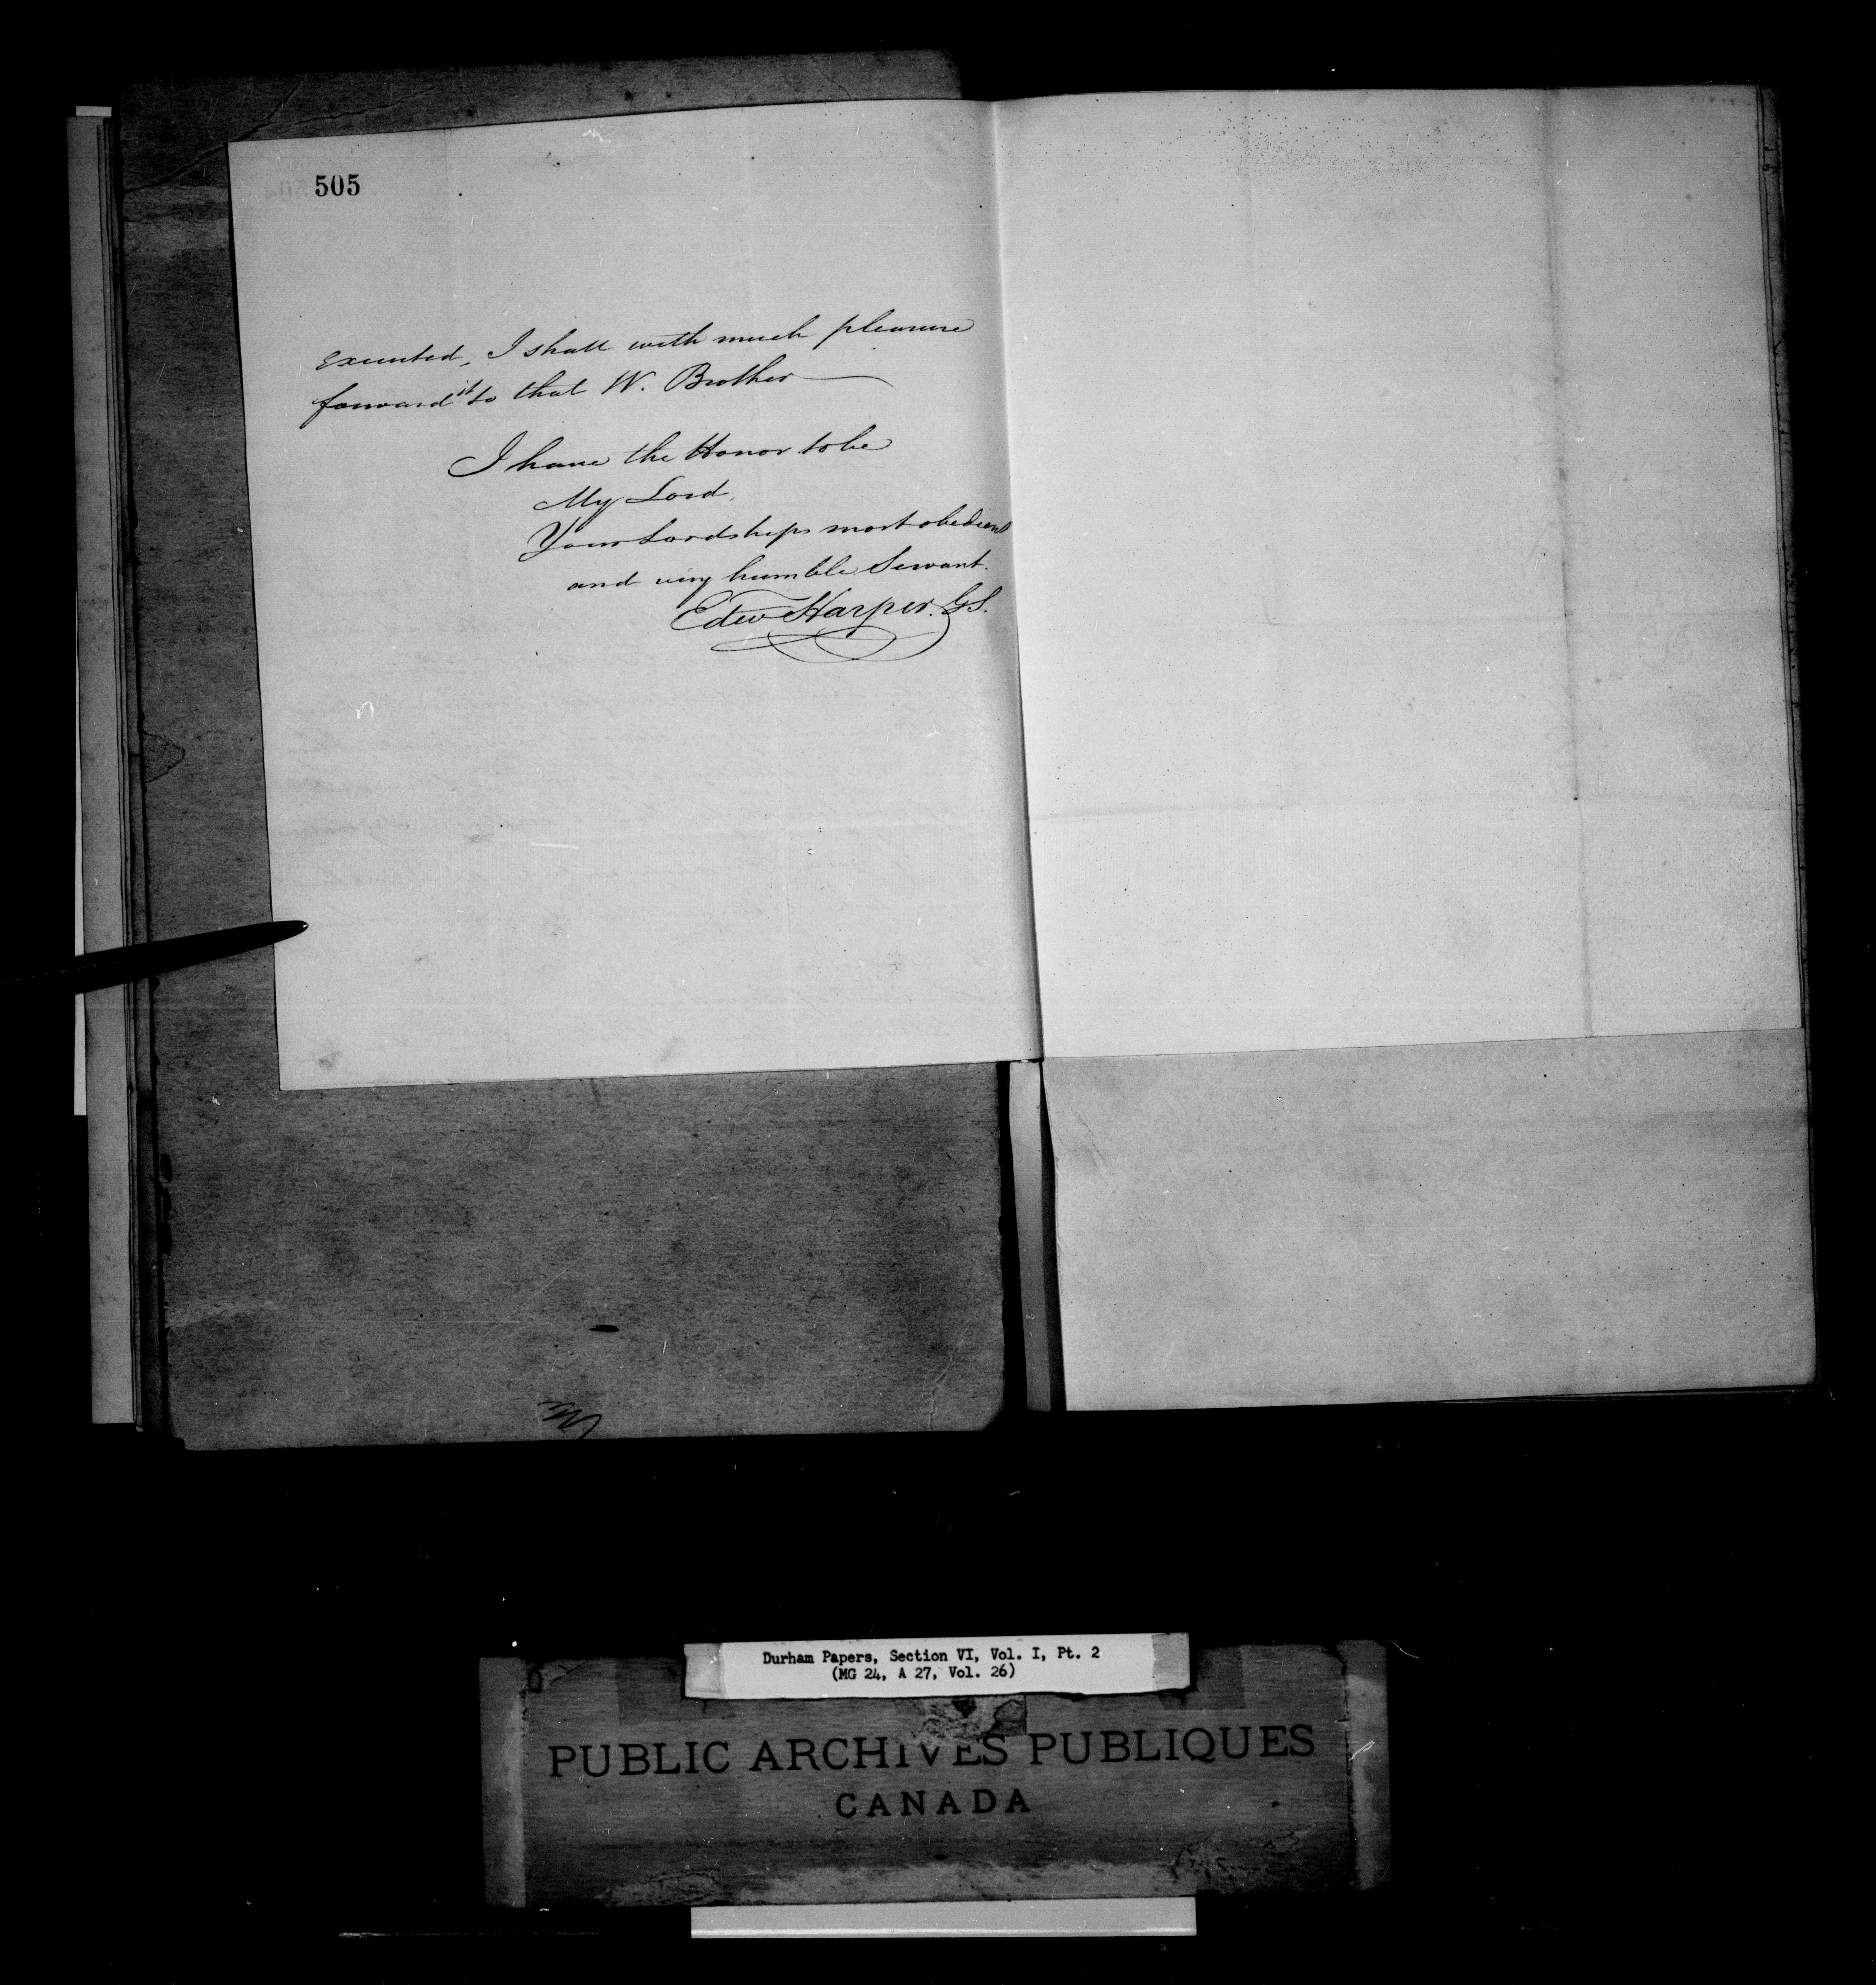 505
executed, I shall with much pleasure
forward it to that W. Brother
I have the Honor to be
My Lord,
Your Lordships most obedient
and very humble Servant.
Edwd Harper. GS.
Durham Papers, Section VI, Vol. I, Pt. 2
(MG 24, A 27, Vol. 26)
PUBLIC ARCHIVES PUBLIQUES
CANADA